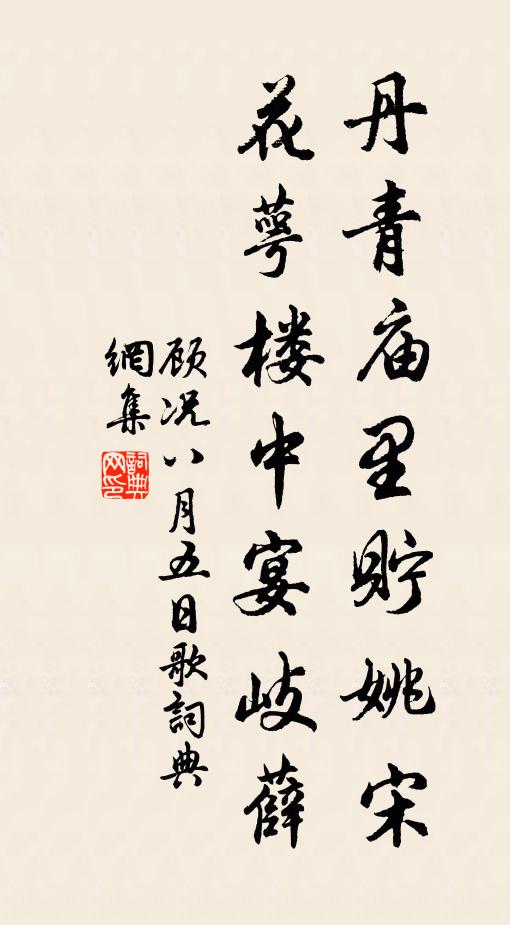 丹青庙里貯姚宋
花萼楼中宴岐薛
顾况八月五日歌詞典
網集
詞典网印